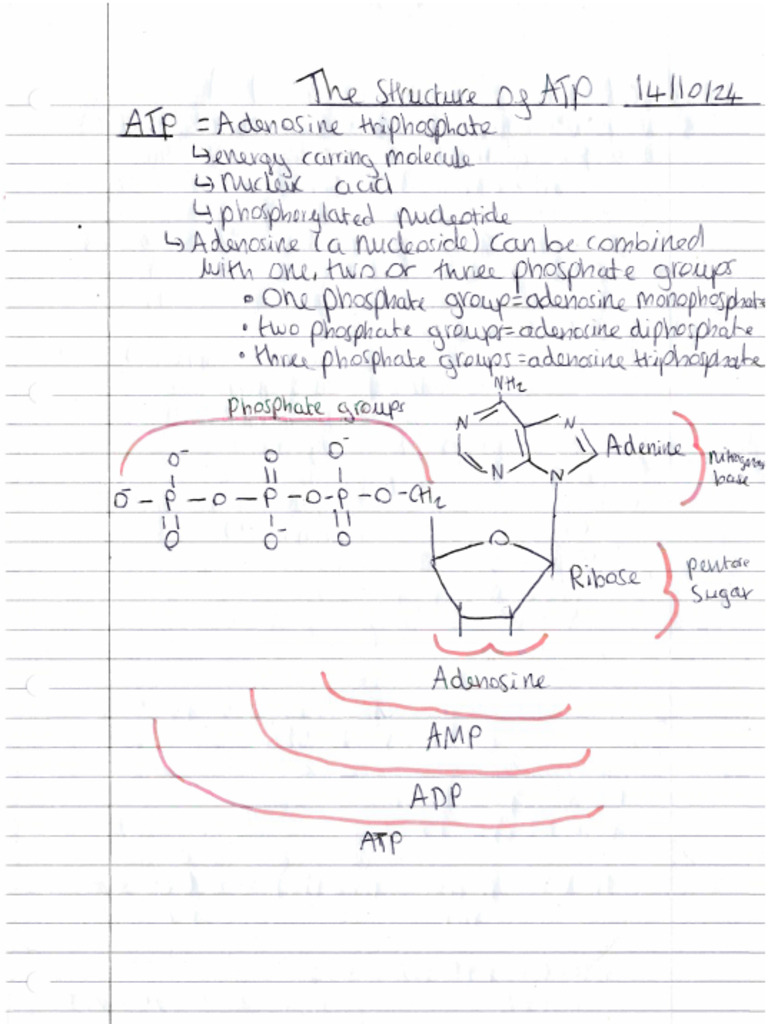 The Structure of ATP 14/10/24
ATP = Adenosine triphosphate
↳ energy carring molecule
↳ Nucleic acid
↳ phosphorylated nucleotide
↳ Adenosine (a nucleoside) can be combined
with one, two or three phosphate groups
• One phosphate group = adenosine monophosphate
• two phosphate groups = adenosine diphosphate
• three phosphate groups = adenosine triphosphate
NH₂
Phosphate groups
N N
Adenine
nitrogenous
base
N N
O⁻ O O⁻
O⁻ - P - O - P - O - P - O - CH₂
O O⁻ O
O
Ribose
pentose
sugar
Adenosine
AMP
ADP
ATP